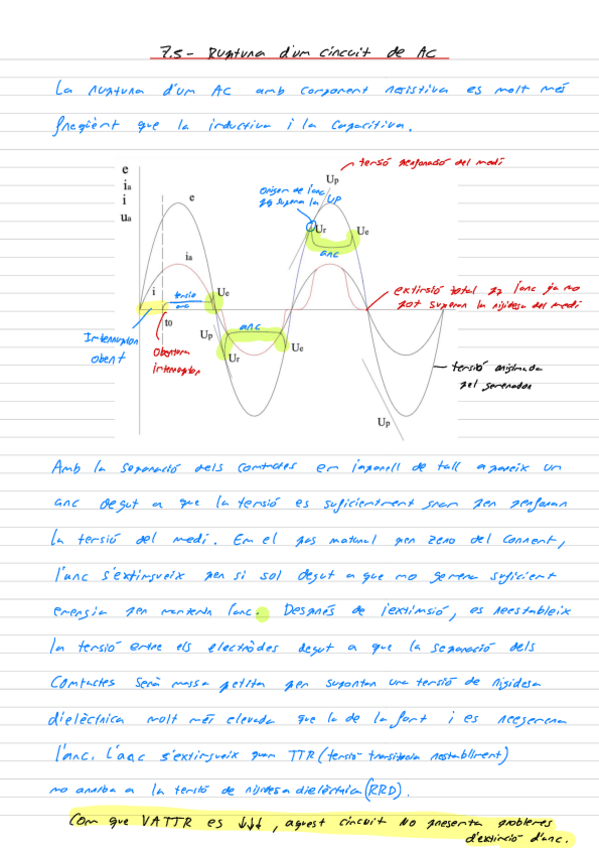 7.5- Ruptura d'um circuit de AC
La ruptura d'um AC amb component resistiva es molt més
freqüent que la inductiva i la capacitiva.
e
ia
i
ua
e
ia
i
to
tensio
arc
Ue
Up
Ur
arc
Ue
Origen de l'arc
ja supera la UP
tensió perforació del medi
Up
Ur
Ue
arc
extinsió total pq l'arc ja no
pot superar la rigidesa del medi
Interruptor
obert
Obertura
interruptor
tensió originada
pel generador
Up
Amb la separació dels contactes en l'aparell de tall apareix un
arc degut a que la tensió es suficientment gran per perforar
la tensió del medi. Em el pas natural per zero del corrent,
l'arc s'extingueix per si sol degut a que no genera suficient
energia per mantenir l'arc. Després de l'extinsió, es reestableix
la tensió entre els electròdes degut a que la separació dels
contactes serà massa petita per suportar una tensió de rigidesa
dielèctrica molt més elevada que la de la font i es regenera
l'arc. L'arc s'extingueix quan TTR (tensió transitoria restabliment)
no arriba a la tensió de rigidesa dielèctrica (RRD).
Com que VATTR es ↓↓↓, aquest circuit no presenta problemes
d'extinció d'arc.